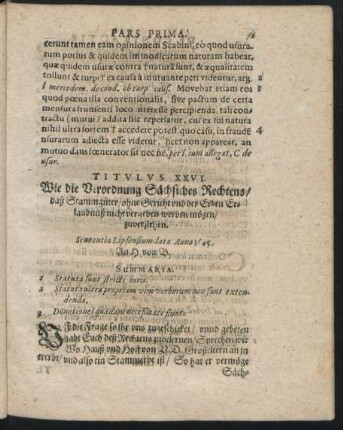 PARS PRIMA.
cerunt tamen eam opinionem Scabini, eò quod usura-
rum potius & quidem immodicarum naturam habeat,
quæ quidem usuræ contra naturā sunt, & æqualitatem
tollunt & turpi ex causa à mutuante peti videntur, arg.
l mercedem. de cond. ob turp. caus. Movebat etiam eos
quod pœna illa conventionalis, sive pactum de certa
mensura frumenti loco interesse percipienda, tali con-
tractu (mutui) addita hic reperiatur, cui ex sui natura
nihil ultra sortem accedere potest quo casu, in fraudē
usurarum adiecta esse videtur, licet non appareat, an
mutuo dans fœnerator sit nec ne, per l. cum allegat. C. de
usur.
TITVLVS XXVI.
Wie die Verordnung Sächsiches Rechtens/
daß Stammgüter/ ohne Gericht und der Erben Er-
laubnüß nicht vergeben werden mögen/
zuverstehen.
Sententia Lipsensium lata Anno 1545.
An H von B.
SUMMARIA.
1 Statuta sunt stricti iuris.
2 Statuta ultra propriam vim verborum non sunt exten-
denda.
3 Donationes quædam necessitate fiunt.
Auf die Frage so ihr uns zugeschicket/ unnd gebeten
habt Euch deß Rechtens zuvordern/ Sprechen wir
Wo Hauß und Hoff von V.D. Großeltern an in
ererbt/ und also ein Stammerbe ist/ So hat er vermöge
Säch-